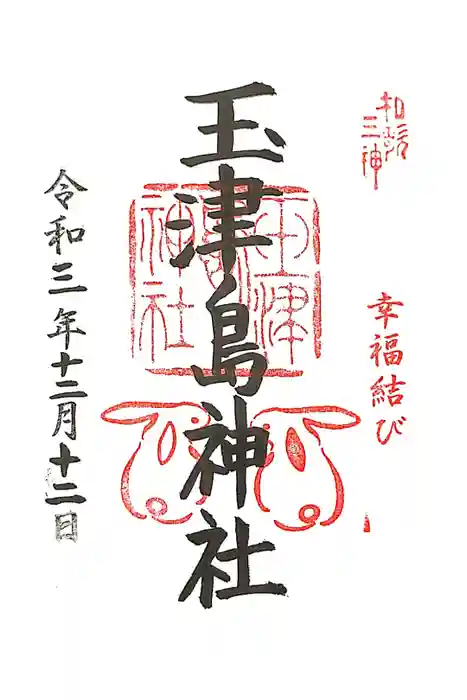 和歌三神
幸福結び
玉津島神社
玉津島神社
令和三年十二月十二日